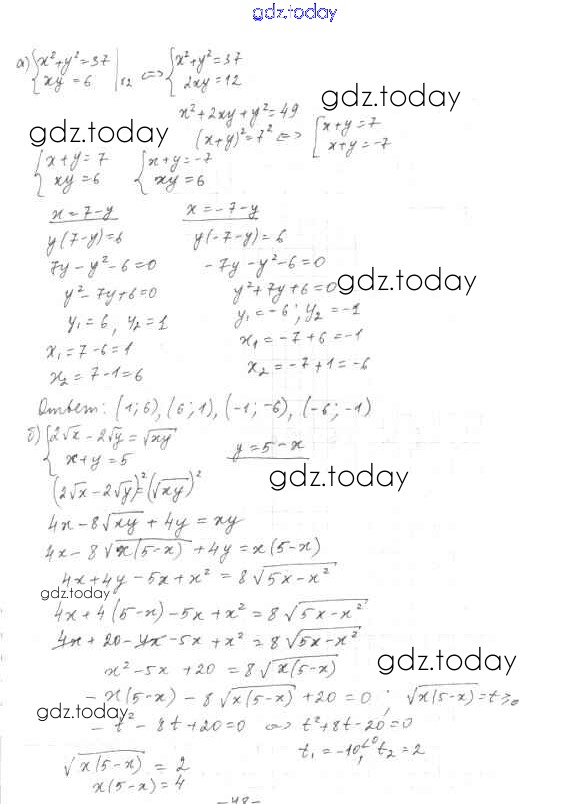 gdz.today
а) { x²+y²=37 | xy=6 |·2 <=> { x²+y²=37 | 2xy=12
gdz.today
x²+2xy+y²=49
gdz.today
(x+y)²=7² <=> [ x+y=7 | x+y=-7
{ x+y=7 | xy=6 { x+y=-7 | xy=6
x=7-y x=-7-y
y(7-y)=6 y(-7-y)=6
7y-y²-6=0 -7y-y²-6=0
gdz.today
y²-7y+6=0 y²+7y+6=0
y₁=6, y₂=1 y₁=-6; y₂=-1
x₁=7-6=1 x₁=-7+6=-1
x₂=7-1=6 x₂=-7+1=-6
Ответ: (1;6), (6;1), (-1;-6), (-6;-1)
б) { 2√x-2√y=√xy | x+y=5 y=5-x
gdz.today
(2√x-2√y)²=(√xy)²
4x-8√xy+4y=xy
4x-8√x(5-x)+4y=x(5-x)
4x+4y-5x+x²=8√5x-x²
gdz.today
4x+4(5-x)-5x+x²=8√5x-x²
4x+20-4x-5x+x²=8√5x-x²
x²-5x+20=8√x(5-x)
gdz.today
-x(5-x)-8√x(5-x)+20=0; √x(5-x)=t≥0
gdz.today
-t²-8t+20=0 <=> t²+8t-20=0
t₁=-10<0, t₂=2
√x(5-x)=2
x(5-x)=4
-48-